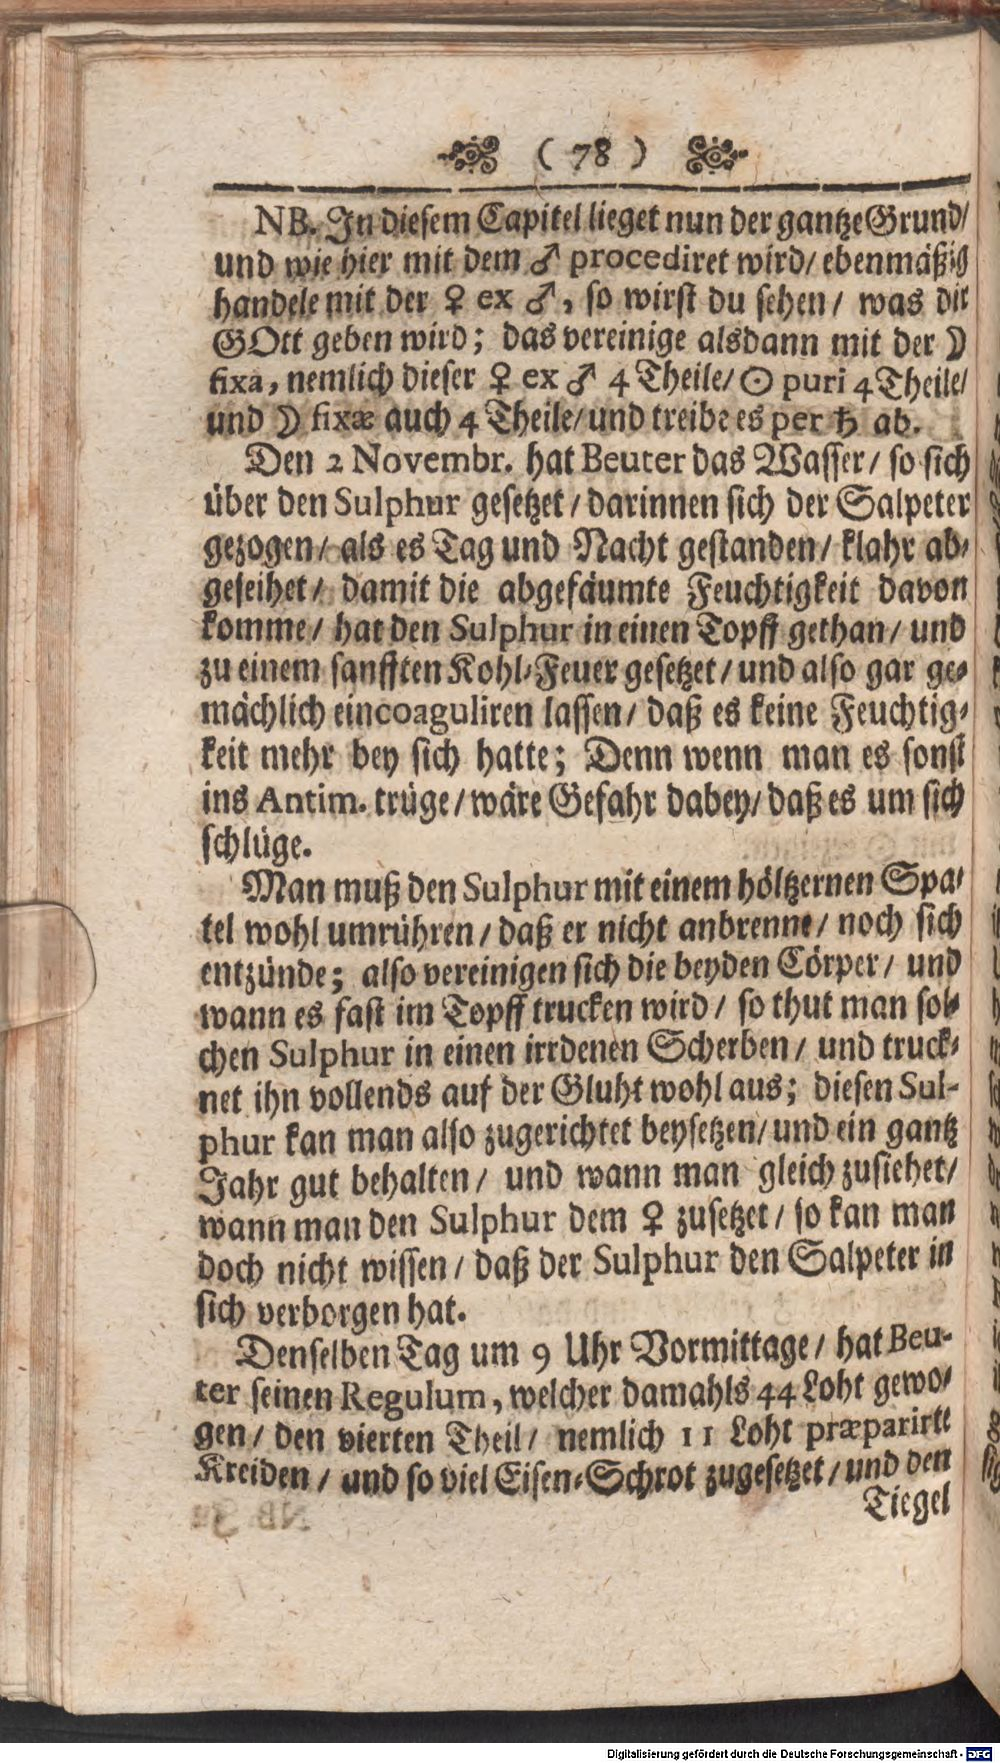 ( 78 )
NB. In diesem Capitel lieget nun der gantze Grund/
und wie hier mit dem ♂ procediret wird/ ebenmäßig
handele mit der ♀ ex ♂, so wirst du sehen/ was dir
GOtt geben wird; das vereinige alsdann mit der ☽
fixa, nemlich dieser ♀ ex ♂ 4 Theile/ ☉ puri 4 Theile/
und ☽ fixæ auch 4 Theile/ und treibe es per ♄ ab.
Den 2 Novembr. hat Beuter das Wasser/ so sich
über den Sulphur gesetzet/ darinnen sich der Salpeter
gezogen/ als es Tag und Nacht gestanden/ klahr ab-
geseihet/ damit die abgefäumte Feuchtigkeit davon
komme/ hat den Sulphur in einen Topff gethan/ und
zu einem sanfften Kohl-Feuer gesetzet/ und also gar ge-
mächlich eincoaguliren lassen/ daß es keine Feuchtig-
keit mehr bey sich hatte; Denn wenn man es sonst
ins Antim. trüge/ wäre Gefahr dabey/ daß es um sich
schlüge.
Man muß den Sulphur mit einem höltzernen Spa-
tel wohl umrühren/ daß er nicht anbrenne/ noch sich
entzünde; also vereinigen sich die beyden Cörper/ und
wann es fast im Topff trucken wird/ so thut man sol-
chen Sulphur in einen irrdenen Scherben/ und truck-
net ihn vollends auf der Gluht wohl aus; diesen Sul-
phur kan man also zugerichtet beysetzen/ und ein gantz
Jahr gut behalten/ und wann man gleich zusiehet/
wann man den Sulphur dem ♀ zusetzet/ so kan man
doch nicht wissen/ daß der Sulphur den Salpeter in
sich verborgen hat.
Denselben Tag um 9 Uhr Vormittage/ hat Beu-
ter seinen Regulum, welcher damahls 44 Loht gewo-
gen/ den vierten Theil/ nemlich 11 Loht præparirte
Kreiden/ und so viel Eisen-Schrot zugesetzet/ und den
Tiegel
Digitalisierung gefördert durch die Deutsche Forschungsgemeinschaft - DFG